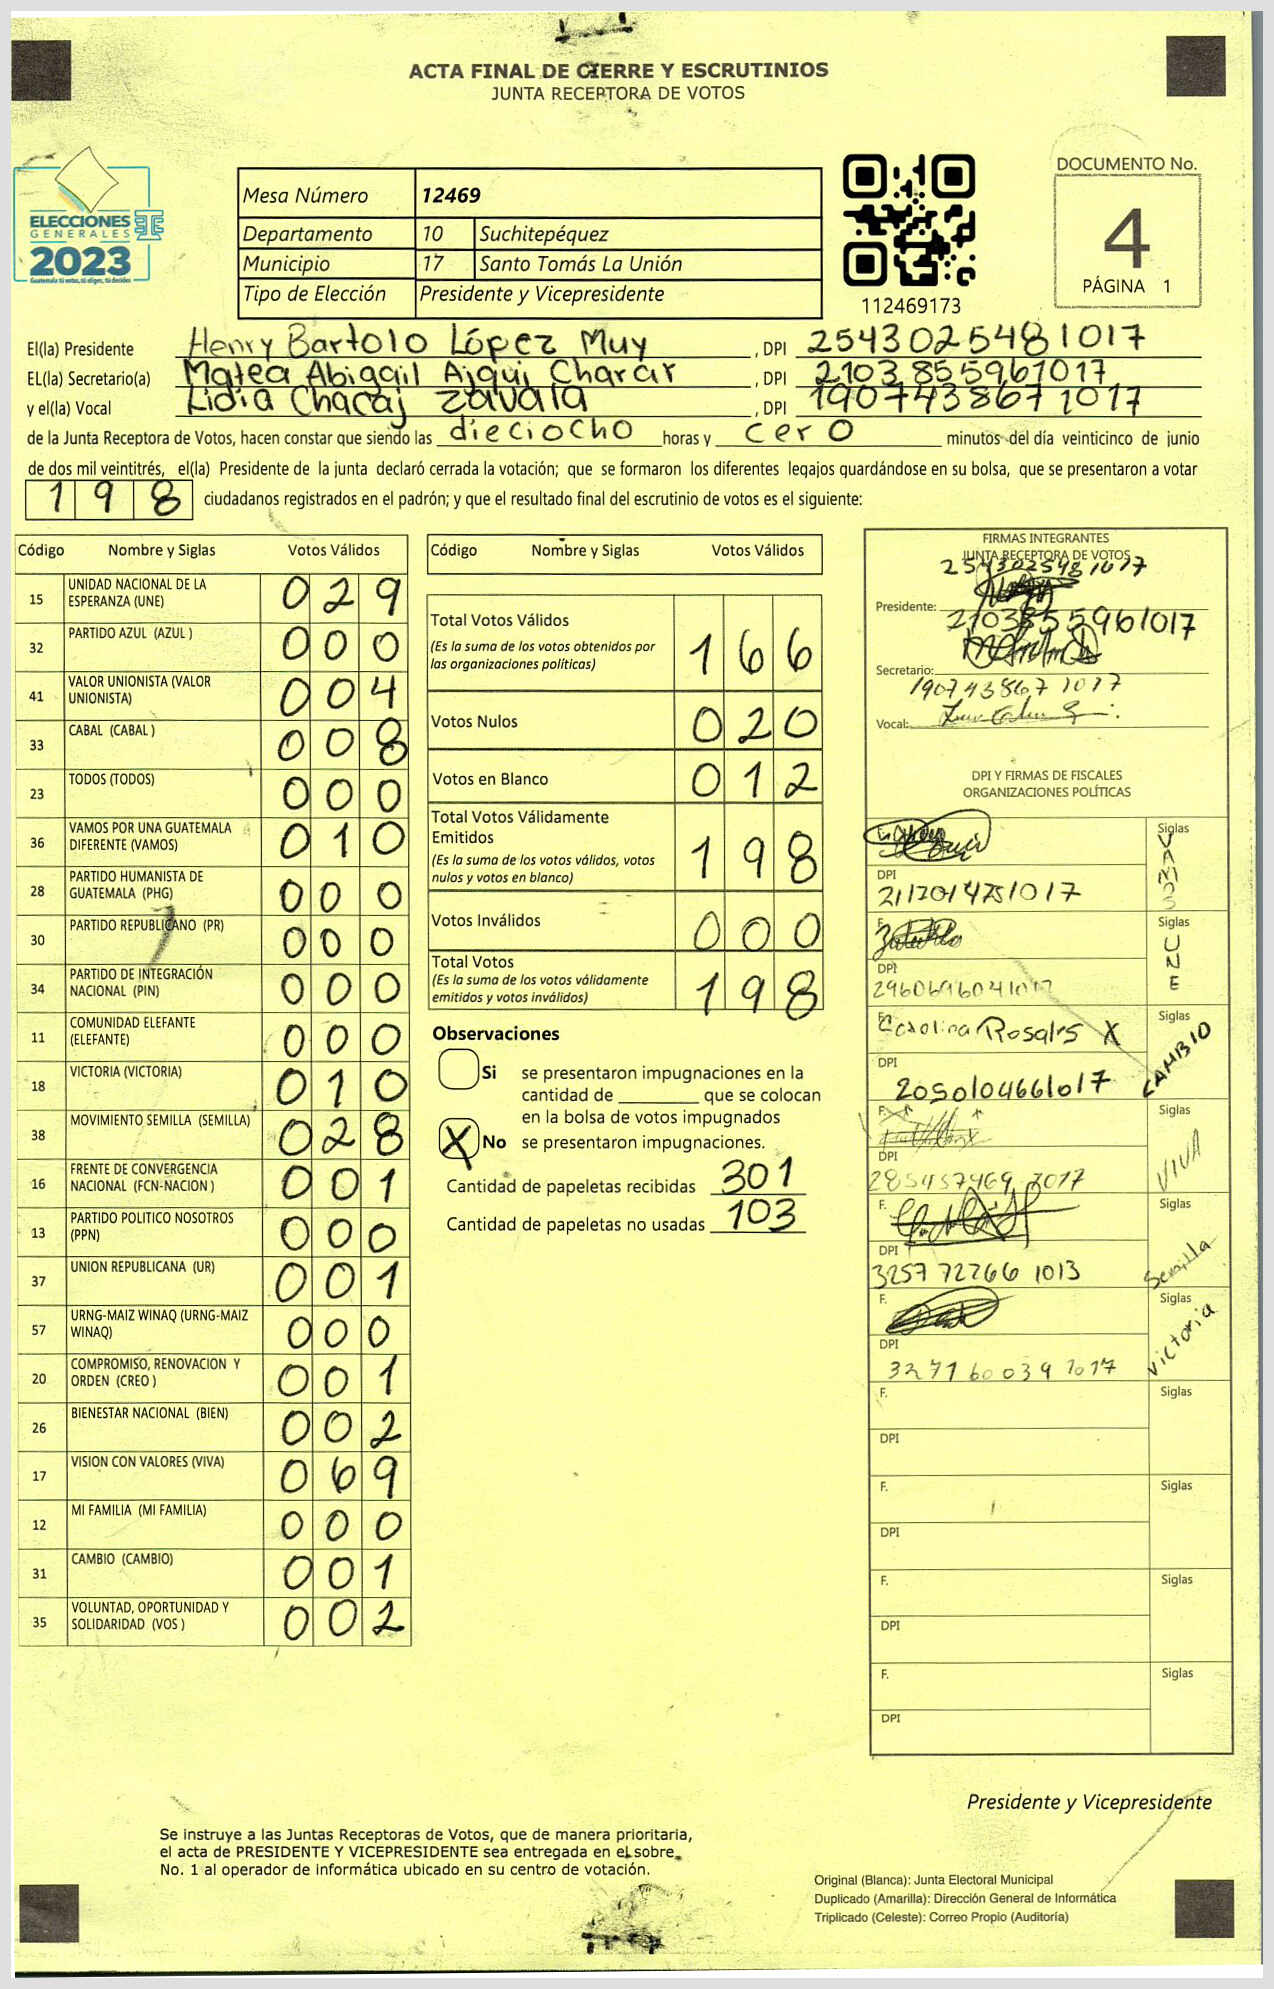 ACTA FINAL DE CIERRE Y ESCRUTINIOS
JUNTA RECEPTORA DE VOTOS
ELECCIONES
GENERALES
2023
Guatemala tú votas, tú eliges, tú decides
Mesa Número 12469
Departamento 10 Suchitepéquez
Municipio 17 Santo Tomás La Unión
Tipo de Elección Presidente y Vicepresidente
112469173
DOCUMENTO No.
4
PÁGINA 1
El(la) Presidente Henry Bartolo López Muy , DPI 2543025481017
EL(la) Secretario(a) Matea Abigail Ajqui Charar , DPI 2103855961017
y el(la) Vocal Lidia Chacaj Zavala , DPI 1907438671017
de la Junta Receptora de Votos, hacen constar que siendo las dieciocho horas y cero minutos del día veinticinco de junio
de dos mil veintitrés, el(la) Presidente de la junta declaró cerrada la votación; que se formaron los diferentes legajos guardándose en su bolsa, que se presentaron a votar
198 ciudadanos registrados en el padrón; y que el resultado final del escrutinio de votos es el siguiente:
Código Nombre y Siglas Votos Válidos
15 UNIDAD NACIONAL DE LA
ESPERANZA (UNE) 029
32 PARTIDO AZUL (AZUL ) 000
41 VALOR UNIONISTA (VALOR
UNIONISTA) 004
33 CABAL (CABAL ) 008
23 TODOS (TODOS) 000
36 VAMOS POR UNA GUATEMALA
DIFERENTE (VAMOS) 010
28 PARTIDO HUMANISTA DE
GUATEMALA (PHG) 000
30 PARTIDO REPUBLICANO (PR) 000
34 PARTIDO DE INTEGRACIÓN
NACIONAL (PIN) 000
11 COMUNIDAD ELEFANTE
(ELEFANTE) 000
18 VICTORIA (VICTORIA) 010
38 MOVIMIENTO SEMILLA (SEMILLA) 028
16 FRENTE DE CONVERGENCIA
NACIONAL (FCN-NACION ) 001
13 PARTIDO POLITICO NOSOTROS
(PPN) 000
37 UNION REPUBLICANA (UR) 001
57 URNG-MAIZ WINAQ (URNG-MAIZ
WINAQ) 000
20 COMPROMISO, RENOVACION Y
ORDEN (CREO ) 001
26 BIENESTAR NACIONAL (BIEN) 002
17 VISION CON VALORES (VIVA) 069
12 MI FAMILIA (MI FAMILIA) 000
31 CAMBIO (CAMBIO) 001
35 VOLUNTAD, OPORTUNIDAD Y
SOLIDARIDAD (VOS ) 002
Código Nombre y Siglas Votos Válidos
Total Votos Válidos
(Es la suma de los votos obtenidos por
las organizaciones políticas) 166
Votos Nulos 020
Votos en Blanco 012
Total Votos Válidamente
Emitidos
(Es la suma de los votos válidos, votos
nulos y votos en blanco) 198
Votos Inválidos 000
Total Votos
(Es la suma de los votos válidamente
emitidos y votos inválidos) 198
Observaciones
Si se presentaron impugnaciones en la
cantidad de ________ que se colocan
en la bolsa de votos impugnados
X No se presentaron impugnaciones.
Cantidad de papeletas recibidas 301
Cantidad de papeletas no usadas 103
FIRMAS INTEGRANTES
JUNTA RECEPTORA DE VOTOS
2543025481017
Presidente:
2103855961017
Secretario:
1907438671017
Vocal:
DPI Y FIRMAS DE FISCALES
ORGANIZACIONES POLÍTICAS
F. Siglas VAMOS
DPI
F. Siglas UNE
DPI
F. Carolina Rosales X Siglas CAMBIO
DPI
2050104661017
F. Siglas VIVA
DPI
F. Siglas Semilla
DPI
3257 72766 1013
F. Siglas Victoria
DPI
3271600391017
F. Siglas
DPI
F. Siglas
DPI
F. Siglas
DPI
F. Siglas
DPI
Presidente y Vicepresidente
Se instruye a las Juntas Receptoras de Votos, que de manera prioritaria,
el acta de PRESIDENTE Y VICEPRESIDENTE sea entregada en el sobre
No. 1 al operador de informática ubicado en su centro de votación.
Original (Blanca): Junta Electoral Municipal
Duplicado (Amarilla): Dirección General de Informática
Triplicado (Celeste): Correo Propio (Auditoría)